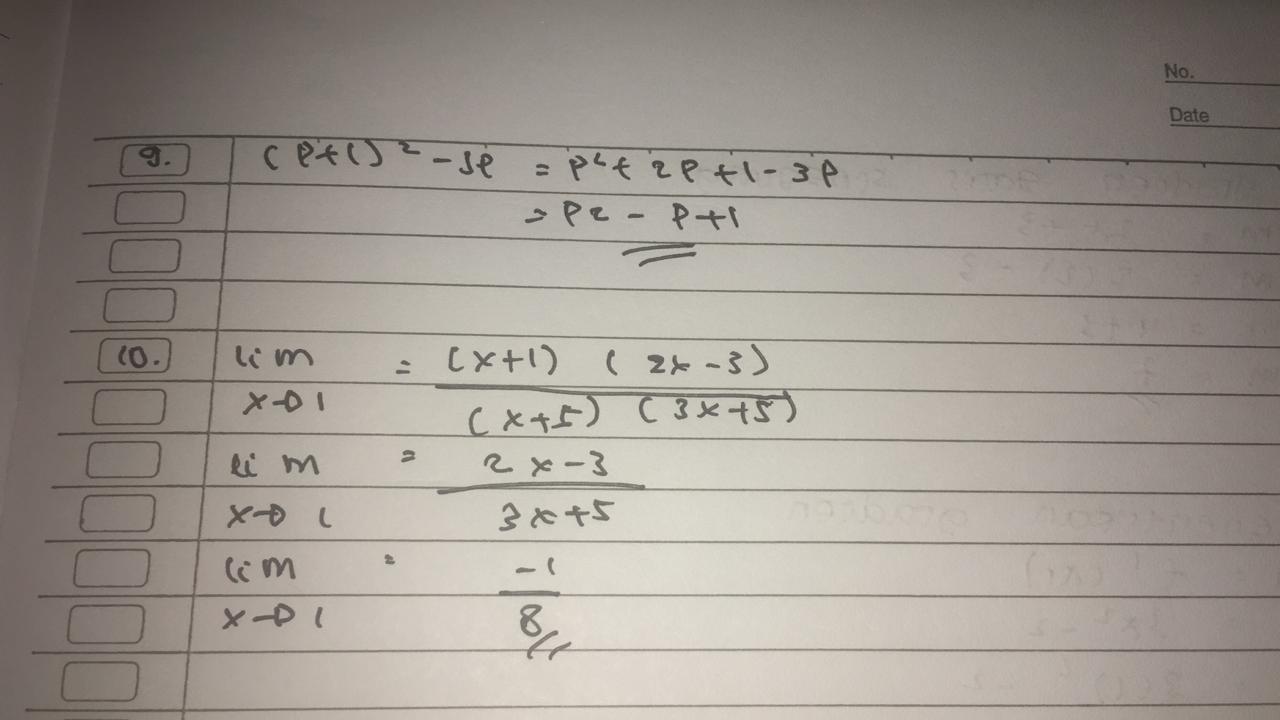 No.
Date
9. (P+1)² - 3P = P² + 2P + 1 - 3P
= P2 - P+1
10. lim = (x+1) (2x-3)
x→1 (x+5) (3x+5)
lim = 2x-3
x→1 3x+5
lim = -1
x→1 8